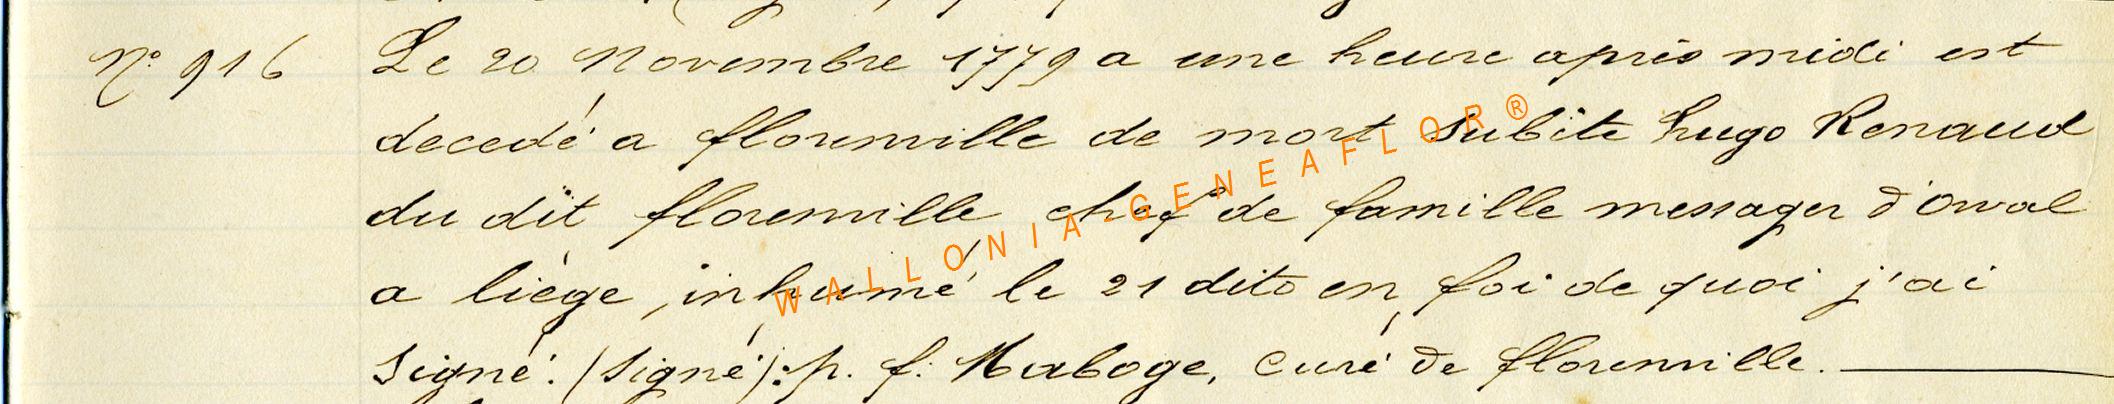 N° 916 Le 20 Novembre 1779 a une heure après midi est
decedé a florenville de mort subite hugo Renaud
du dit florenville chef de famille messager d'Orval
a liège, inhumé le 21 dito en foi de quoi j'ai
signé. (signé): p. f. Maboge, curé de florenville.
WALLONIA-GENEAFLOR®